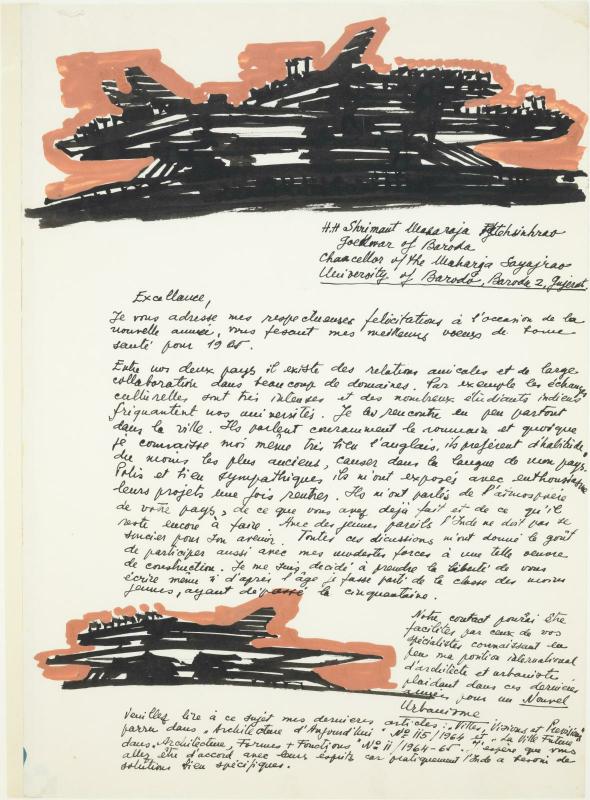 H.H Shrimant Maharaja Fatehsinhrao
Gaekwar of Baroda
Chancellor of the Maharaja Sayajirao
University of Baroda, Baroda 2, Gujerat
Excellance,
Je vous adresse mes respectueuses felicitations à l'occasion de la
nouvelle année, vous fesant mes meilleurs voeux de bonne
santé pour 1965.
Entre nos deux pays il existe des relations amicales et de large
collaboration dans beaucoup de domaines. Par exemple les échanges
culturelles sont très intenses et des nombreux étudiants indiens
friquantent nos universités. Je les rencontre un peu partout
dans la ville. Ils parlent couramment le roumain et quoique
je connaisse moi même très bien l'anglais, ils préfèrent d'habitude,
du moins les plus anciens, causer dans la langue de mon pays.
Polis et bien sympathiques ils m'ont exposés avec enthousiasme
leurs projets une fois rentres. Ils m'ont parlés de l'atmosphère
de votre pays, de ce que vous avez dejà fait et de ce qu'il
reste encore à faire. Avec des jeunes pareils l'Inde ne doit pas se
soucier pour son avenir. Toutes ces discussions m'ont donné le goût
de participer aussi avec mes modestes forces à une telle oeuvre
de construction. Je me suis decidé à prendre la liberté de vous
écrire même si d'après l'âge je fasse parti de la classe des moins
jeunes, ayant dépassé la cinquantaine.
Notre contact pourrai être
facilités par ceux de vos
spécialistes connaissant un
peu ma position international
d'architecte et urbaniste
plaidant dans ces dernières
années pour un Nouvel
Urbanisme
Veuillez lire à ce sujet mes dernieres articles: "Villes, Visions et Prévision"
parru dans "Architecture d'Aujourd'hui" No 115/1964 et "La Ville Future"
dans "Architecture, Formes + Fonctions" No 11/1964-65. J'espère que vous
allez être d'accord avec leurs esprits car pratiquement l'Inde a besoin de
solutions bien spécifiques.